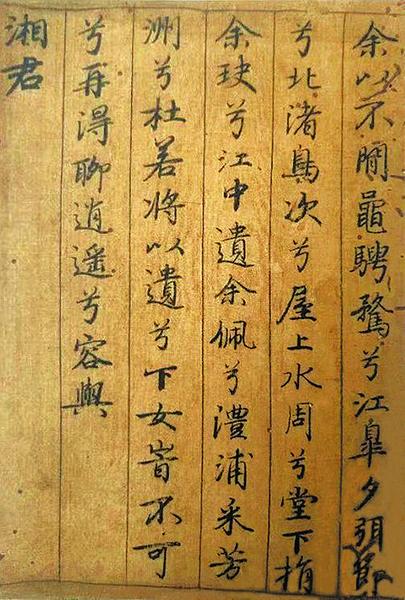 余以不閒鼂騁騖兮江臯夕弭節
兮北渚鳥次兮屋上水周兮堂下捐
余玦兮江中遺余佩兮澧浦采芳
洲兮杜若將以遺兮下女旹不可
兮再得聊逍遥兮容與
湘君